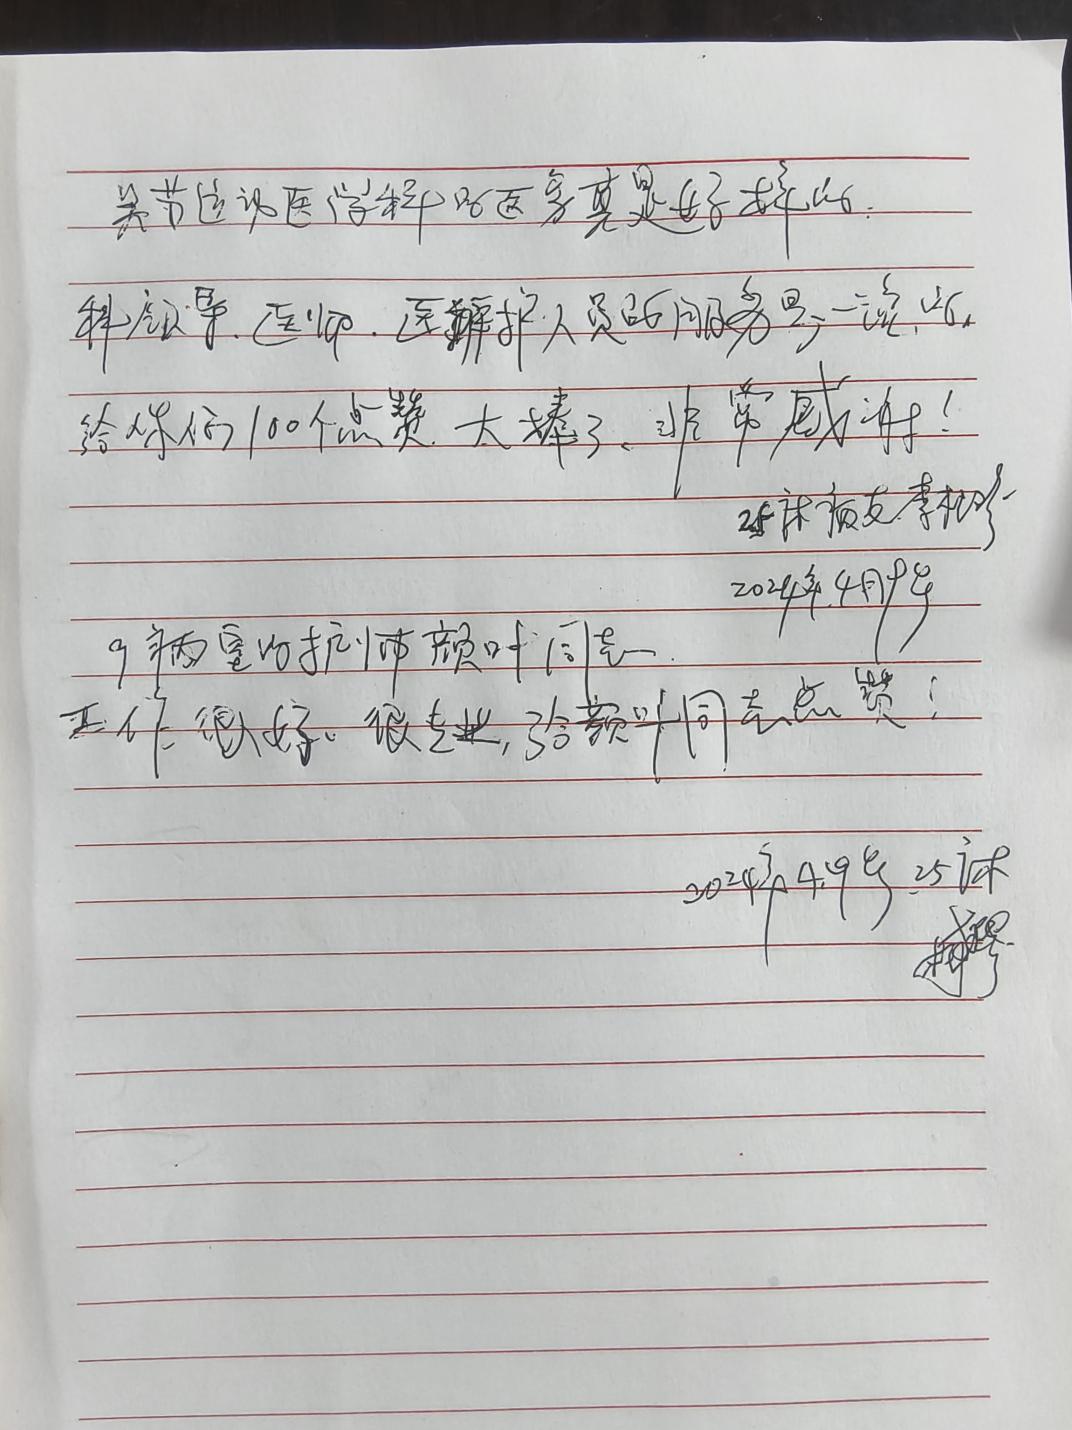 关节运动医学科的医务真是好样的.
科领导.医师.医护人员的服务是一流的.
给你们100个点赞.太棒了、非常感谢!
25床病友.李
2024年.4月9号
9病室的护师颜叶同志.
工作很好。很专业,给颜叶同志点赞!
2024年4.9号 25床